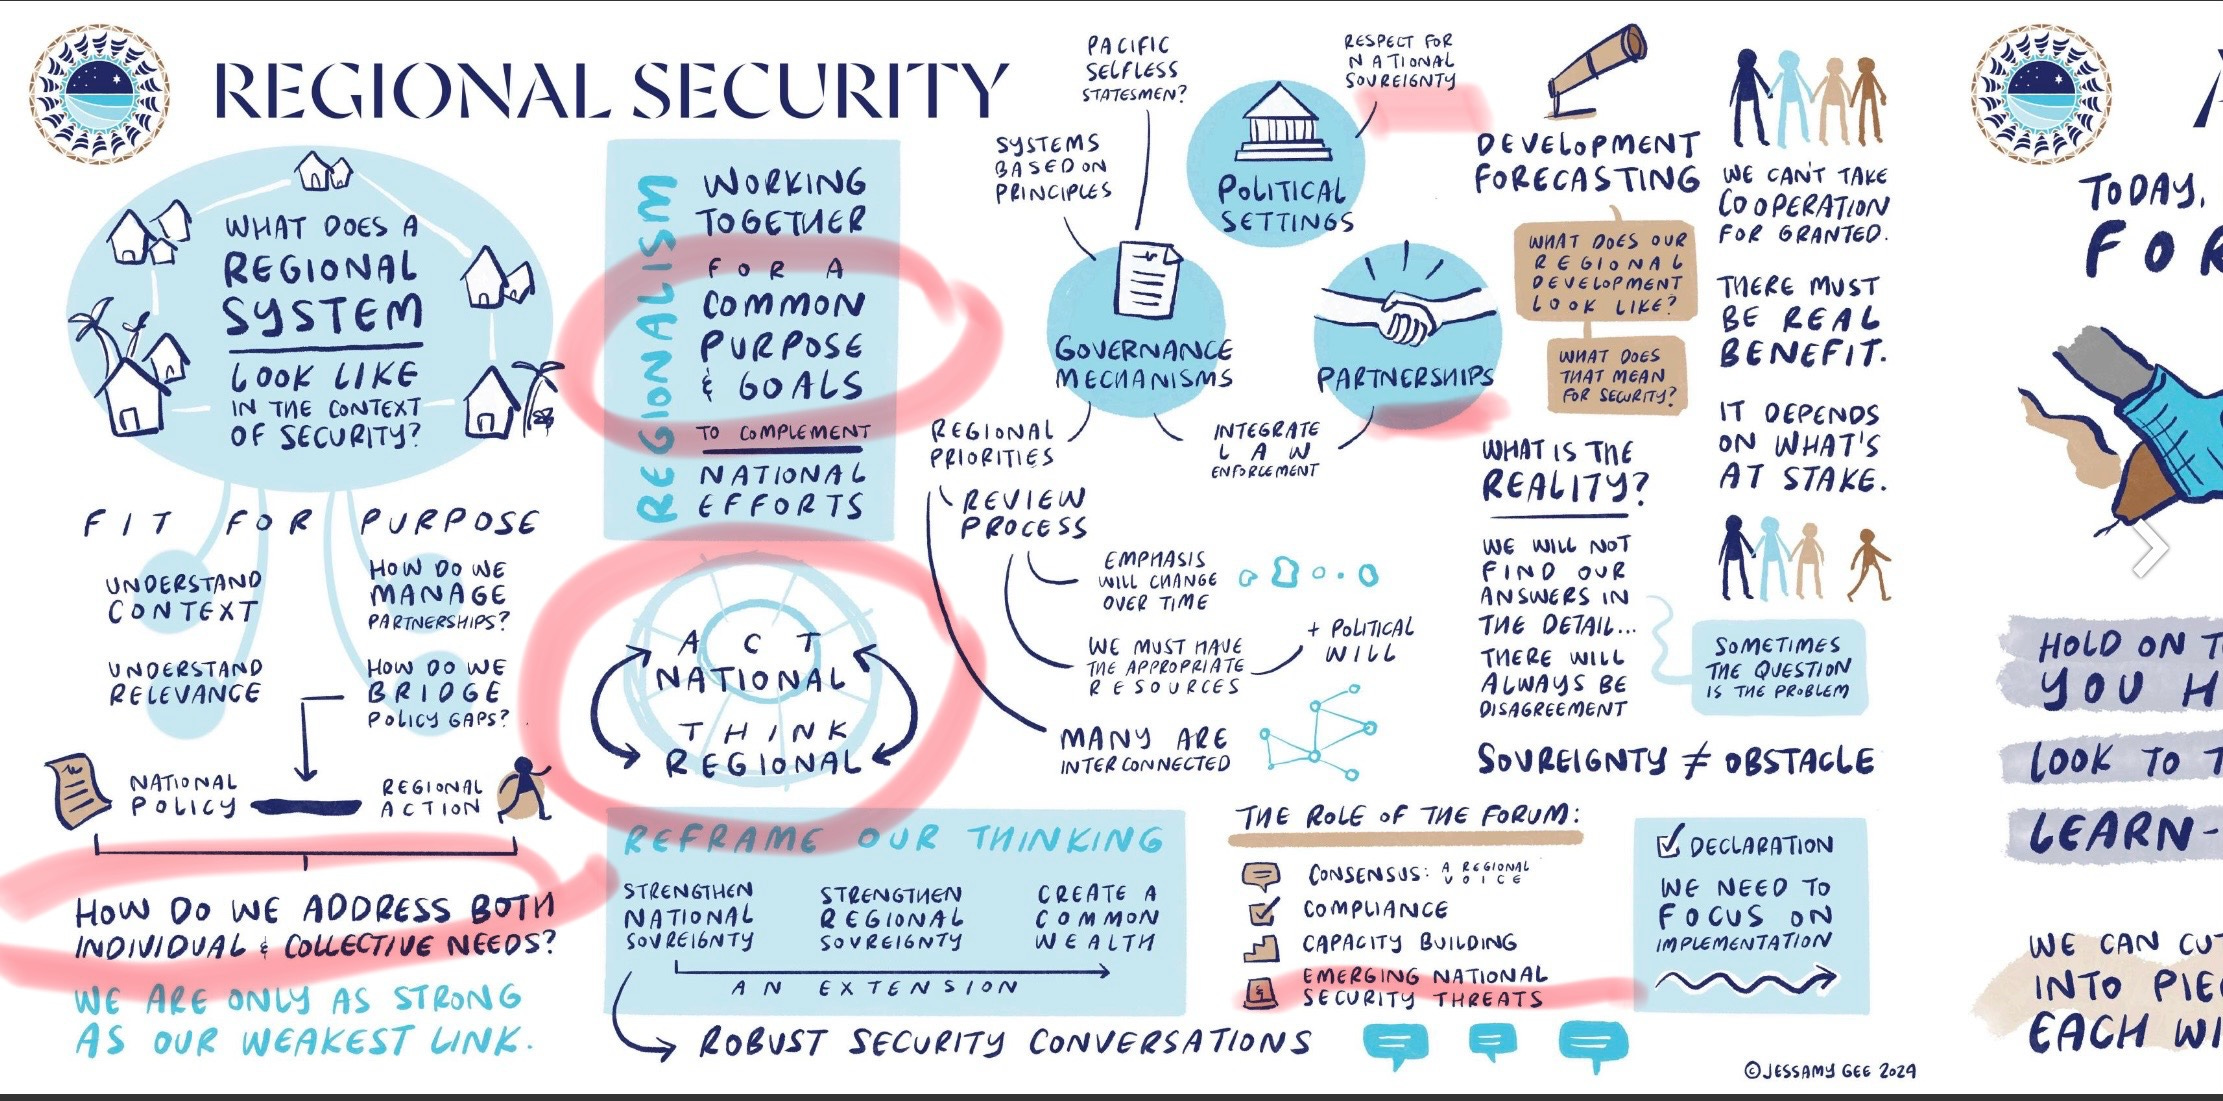 REGIONAL SECURITY
WHAT DOES A
REGIONAL
SYSTEM
LOOK LIKE
IN THE CONTEXT
OF SECURITY?
FIT FOR PURPOSE
UNDERSTAND
CONTEXT
HOW DO WE
MANAGE
PARTNERSHIPS?
UNDERSTAND
RELEVANCE
HOW DO WE
BRIDGE
POLICY GAPS?
NATIONAL
POLICY
REGIONAL
ACTION
HOW DO WE ADDRESS BOTH
INDIVIDUAL & COLLECTIVE NEEDS?
WE ARE ONLY AS STRONG
AS OUR WEAKEST LINK.
REGIONALISM
WORKING
TOGETHER
FOR A
COMMON
PURPOSE
& GOALS
TO COMPLEMENT
NATIONAL
EFFORTS
ACT
NATIONAL
THINK
REGIONAL
REFRAME OUR THINKING
STRENGTHEN
NATIONAL
SOVREIGNTY
STRENGTHEN
REGIONAL
SOVREIGNTY
CREATE A
COMMON
WEALTH
AN EXTENSION
ROBUST SECURITY CONVERSATIONS
PACIFIC
SELFLESS
STATESMEN?
SYSTEMS
BASED ON
PRINCIPLES
RESPECT FOR
NATIONAL
SOVREIGNTY
POLITICAL
SETTINGS
GOVERNANCE
MECHANISMS
PARTNERSHIPS
REGIONAL
PRIORITIES
INTEGRATE
LAW
ENFORCEMENT
REVIEW
PROCESS
EMPHASIS
WILL CHANGE
OVER TIME
WE MUST HAVE
THE APPROPRIATE
RESOURCES
+ POLITICAL
WILL
MANY ARE
INTERCONNECTED
DEVELOPMENT
FORECASTING
WHAT DOES OUR
REGIONAL
DEVELOPMENT
LOOK LIKE?
WHAT DOES
THAT MEAN
FOR SECURITY?
WHAT IS THE
REALITY?
WE WILL NOT
FIND OUR
ANSWERS IN
THE DETAIL...
THERE WILL
ALWAYS BE
DISAGREEMENT
SOMETIMES
THE QUESTION
IS THE PROBLEM
SOVREIGNTY ≠ OBSTACLE
WE CAN'T TAKE
COOPERATION
FOR GRANTED.
THERE MUST
BE REAL
BENEFIT.
IT DEPENDS
ON WHAT'S
AT STAKE.
THE ROLE OF THE FORUM:
CONSENSUS: A REGIONAL
VOICE
COMPLIANCE
CAPACITY BUILDING
EMERGING NATIONAL
SECURITY THREATS
DECLARATION
WE NEED TO
FOCUS ON
IMPLEMENTATION
©JESSAMY GEE 2024
TODAY,
FOR
HOLD ON T
YOU H
LOOK TO T
LEARN-
WE CAN CUT
INTO PIE
EACH WI